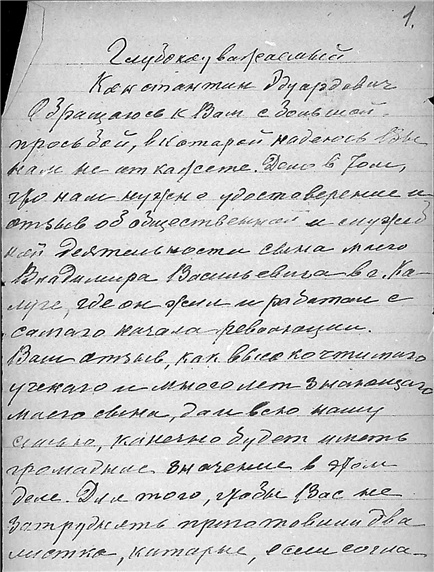 1.
Глубокоуважаемый
Константин Эдуардович
Обращаюсь к Вам с большой
просьбой, в которой надеюсь Вы
нам не откажете. Дело в том,
что нам нужно удостоверение и
отзыв об общественной и служеб
ной деятельности сына моего
Владимира Васильевича в г. Ка-
луге, где он жил и работал с
самаго начала революции.
Ваш отзыв, как высокочтимаго
ученаго и много лет знающаго
моего сына, да и всю нашу
семью, конечно будет иметь
громадное значение в этом
деле. Для того, чтобы Вас не
затруднять приготовили два
листка, которые, если согла-